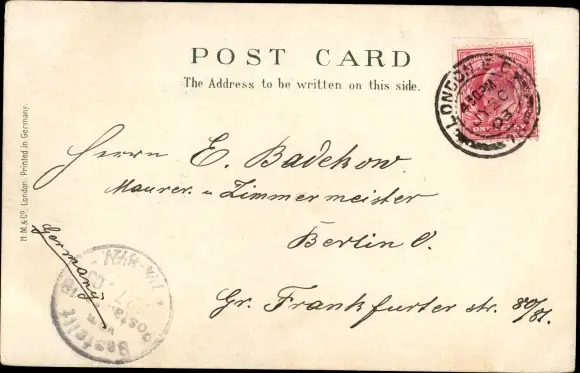 POST CARD
The Address to be written on this side.
LONDON. E.C.
4.30 PM
20
03
H. M. & Co., London. Printed in Germany.
Herrn E. Badekow.
Maurer. u Zimmermeister
Berlin O.
Gr. Frankfurter str. 80/81.
Germany
Bestellt
vom
Postamte